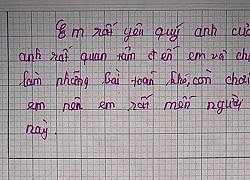 Em rất yêu quý anh cử
anh rất quan tâm đến em và ch
làm những bài toán khó, còn chơi
em nên em rất mến người
này